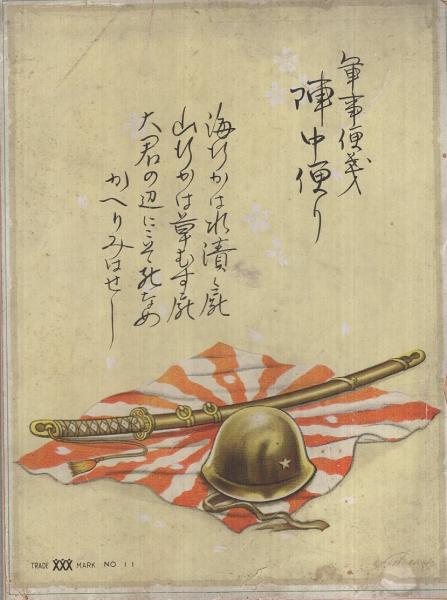 軍事便箋
陣中便り
海行かは水漬く屍
山行かは草むす屍
大君の辺にこそ死なめ
かへりみはせし
TRADE XXX MARK NO 11